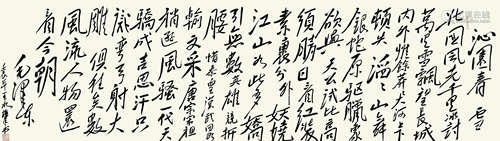 沁園春 雪
北國風光千里冰封
萬里雪飄望長城
内外惟餘莽莽大河上下
頓失滔滔山舞
銀蛇原驅臘象
欲與天公試比高
須晴日看紅裝
素裹分外妖嬈
江山如此多嬌
引無數英雄競折
腰惜秦皇漢武略
輸文采唐宗宋祖
稍遜風騷一代天
驕成吉思汗只
識彎弓射大
雕俱往矣數
風流人物還
看今朝
毛澤東